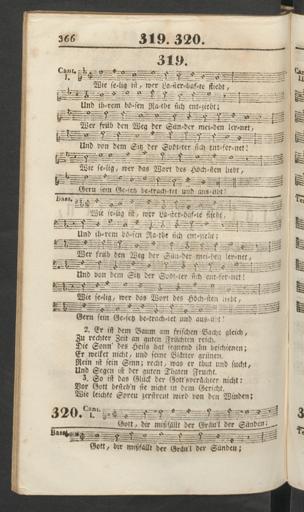 366
319. 320.
319.
Cant. I.
Wie se-lig ist, wer La-ster-haf-te flieht,
Und ih-rem bö-sen Ra-the sich ent-zieht;
Wer früh den Weg der Sün-der mei-den ler-net,
Und von dem Sitz der Spöt-ter sich ent-fer-net!
Wie se-lig, wer das Wort des Höch-sten liebt,
Gern sein Ge-setz be-trach-tet und aus-übt!
Bass.
Wie se-lig ist, wer La-ster-haf-te flieht,
Und ih-rem bö-sen Ra-the sich ent-zieht;
Wer früh den Weg der Sün-der mei-den ler-net,
Und von dem Sitz der Spöt-ter sich ent-fer-net!
Wie se-lig, wer das Wort des Höch-sten liebt,
Gern sein Ge-setz be-trach-tet und aus-übt!
2. Er ist dem Baum am frischen Bache gleich,
Zu rechter Zeit an guten Früchten reich.
Die Sonn' des Heils hat segnend ihn beschienen;
Er welket nicht, und seine Blätter grünen.
Rein ist sein Sinn; recht, was er thut und sucht,
Und Segen ist der guten Thaten Frucht.
3. So ist das Glück der Gottsverächter nicht:
Vor Gott besteh'n sie nicht in dem Gericht.
Wie leichte Spreu zerstreut wird von den Winden;
320.
Cant. I.
Gott, dir mißfällt der Gräu'l der Sünden;
Bass.
Gott, dir mißfällt der Gräu'l der Sünden;